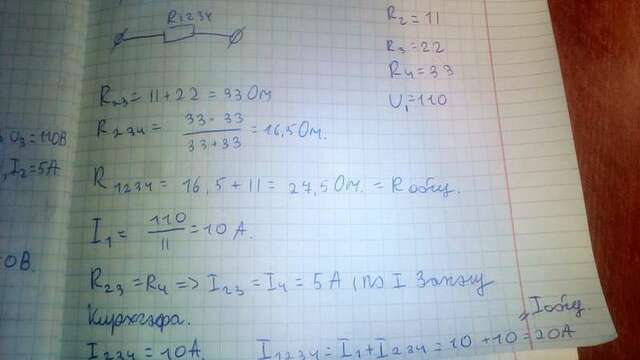 R1234
R2 = 11
R3 = 22
R4 = 33
U1 = 110
R23 = 11 + 22 = 33 Ом
R234 = 33 · 33 / 33 + 33 = 16,5 Ом.
U3 = 110В
I2 = 5А
R1234 = 16,5 + 11 = 27,5 Ом. = R общ.
I1 = 110 / 11 = 10 А.
0В.
R23 = R4 => I23 = I4 = 5 А, по I Закону
Кирхгофа.
I234 = 10А.
I1234 = I1 + I234 = 10 + 10 = 20А
= I общ.